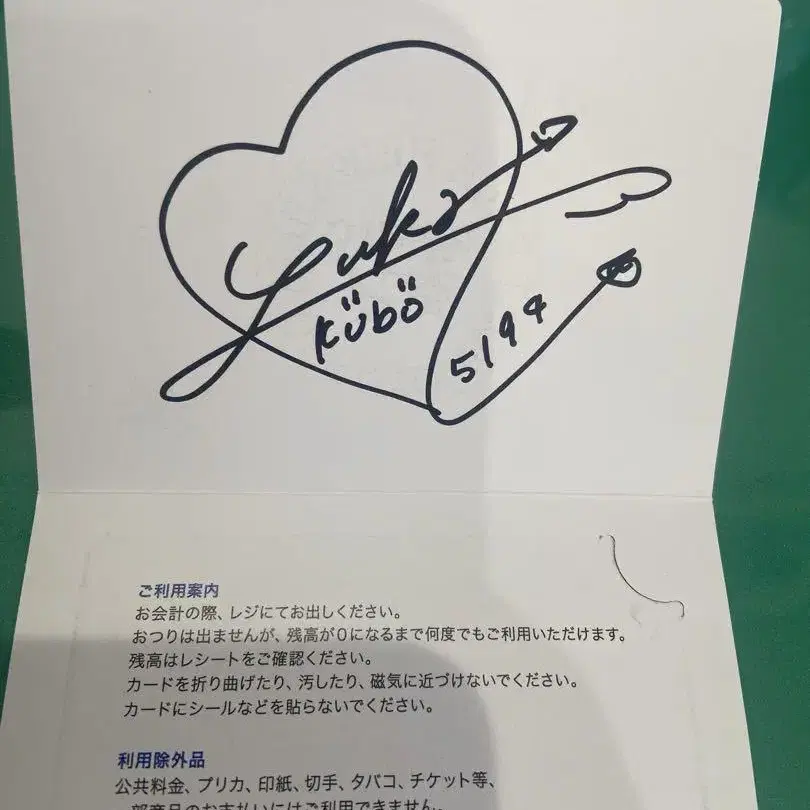 Yuka
Kübö
5194
ご利用案内
お会計の際、レジにてお出しください。
おつりは出ませんが、残高が0になるまで何度でもご利用いただけます。
残高はレシートをご確認ください。
カードを折り曲げたり、汚したり、磁気に近づけないでください。
カードにシールなどを貼らないでください。
利用除外品
公共料金、プリカ、印紙、切手、タバコ、チケット等、
一部商品のお支払いにはご利用できません。